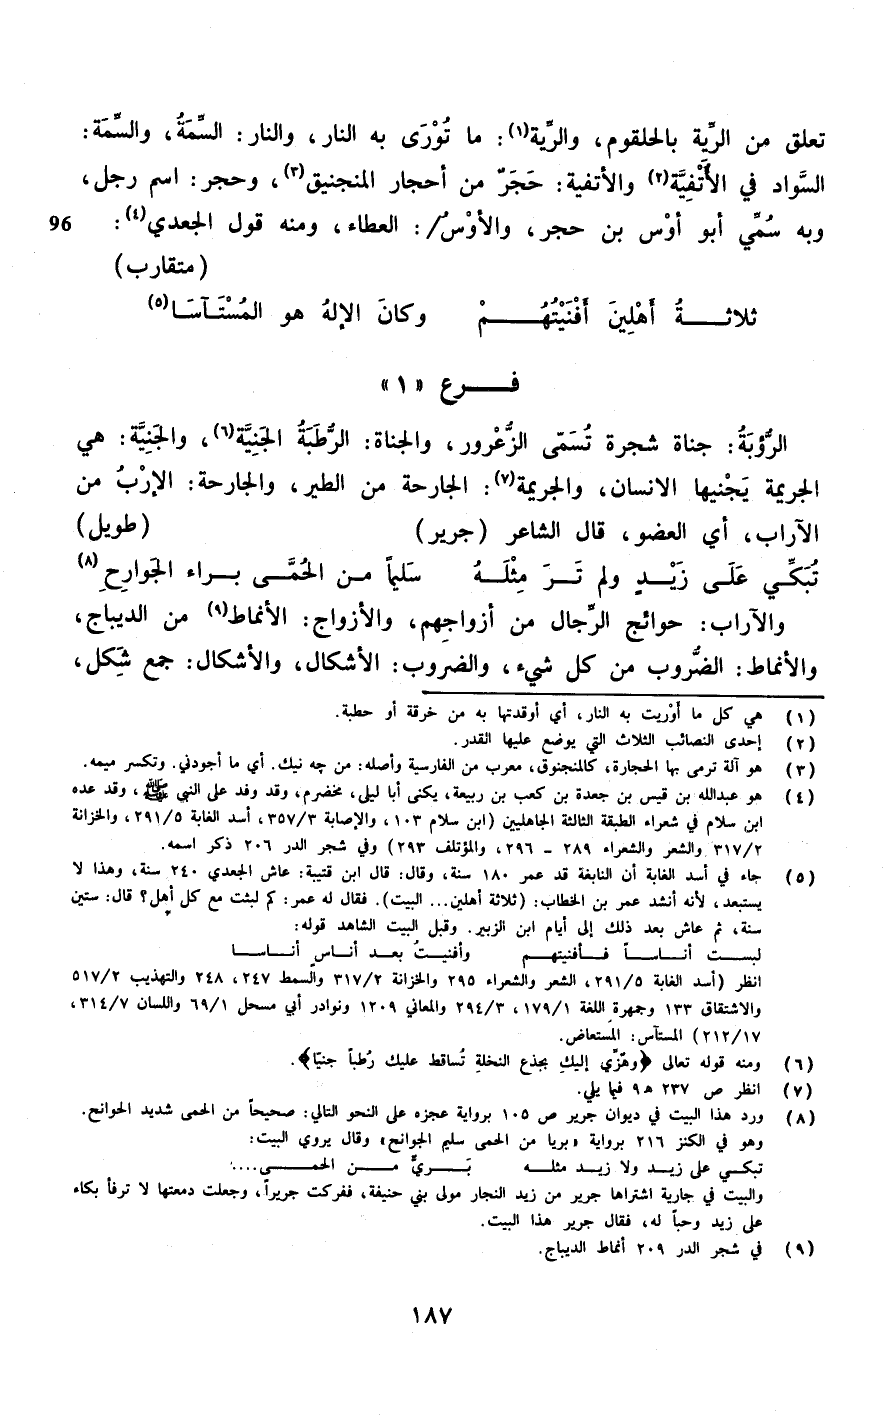 تعلق من الرِّية بالحلقوم، والرِّية(١): ما تُوْرَى به النار، والنار: السِّمَةُ، والسِّمَة:
السَّواد في الأَثْفِيَّة(٢) والأثفية: حَجَرٌ من أحجار المنجنيق(٣)، وحجر: اسم رجل،
وبه سُمِّي أبو أوْس بن حجر، والأوْسُ/: العطاء، ومنه قول الجعدي(٤): 96
(متقارب)
ثلاثـــةُ أهْلِينَ أفْنَيْتُهُـــمْ وكانَ الإلهُ هو المُسْتَـآسَـا(٥)
فـــرع «١»
الرُّؤْبَةُ: جناة شجرة تُسَمّى الزُّعْرور، والجناة: الرُّطَبَةُ الجَنِيَّة(٦)، والجَنِيَّة: هي
الجريمة يَجْنيها الانسان، والجريمة(٧): الجارحة من الطير، والجارحة: الإرْبُ من
الآراب، أي العضو، قال الشاعر (جرير) (طويل)
تُبَكِّي عَلَى زَيْـدٍ ولم تَـرَ مِثْلَـهُ سَليماً مـن الحُمَّـى بـراء الجَوارِحِ(٨)
والآراب: حوائج الرِّجال من أزواجِهم، والأزواج: الأنماط(٩) من الديباج،
والأنماط: الضُّروب من كل شيء، والضروب: الأشكال، والأشكال: جمع شَكِل،
(١) هي كل ما أَوْريت به النار، أي أوقدتها به من خرقة أو حطبة.
(٢) إحدى النصائب الثلاث التي يوضع عليها القدر.
(٣) هو آلة ترمى بها الحجارة، كالمنجنوق، معرب من الفارسية وأصله: من چه نيك. أي ما أجودني. وتكسر ميمه.
(٤) هو عبدالله بن قيس بن جعدة بن كعب بن ربيعة، يكنى أبا ليلى، مخضرم، وقد وفد على النبي ﷺ، وقد عده
ابن سلام في شعراء الطبقة الثالثة الجاهليين (ابن سلام ١٠٣، والإصابة ٣٥٧/٣، أسد الغابة ٢٩١/٥، والخزانة
٣١٧/٢ والشعر والشعراء ٢٨٩ - ٢٩٦، والمؤتلف ٢٩٣) وفي شجر الدر ٢٠٦ ذكر اسمه.
(٥) جاء في أسد الغابة أن النابغة قد عمر ١٨٠ سنة، وقال: قال ابن قتيبة: عاش الجعدي ٢٤٠ سنة، وهذا لا
يستبعد، لأنه أنشد عمر بن الخطاب: (ثلاثة أهلين... البيت). فقال له عمر: كم لبثت مع كل أهل؟ قال: ستين
سنة، ثم عاش بعد ذلك إلى أيام ابن الزبير. وقبل البيت الشاهد قوله:
لبسـت أنـاسـاً فـأفنيتهـم وأفنيتُ بعـد أنـاسٍ أنـاسـا
انظر (أسد الغابة ٢٩١/٥، الشعر والشعراء ٢٩٥ والخزانة ٣١٧/٢ والسمط ٢٤٧، ٢٤٨ والتهذيب ٥١٧/٢
والاشتقاق ١٣٣ وجمهرة اللغة ١٧٩/١، ٢٩٤/٣ والمعاني ١٢٠٩ ونوادر أبي مسحل ٦٩/١ واللسان ٣١٤/٧،
٢١٢/١٧) المستآس: المستعاض.
(٦) ومنه قوله تعالى ﴿وهُزّي إليكِ بجذع النخلةِ تُساقط عليك رُطباً جنيّا﴾.
(٧) انظر ص ٢٣٧ هـ ٩ فيما يلي.
(٨) ورد هذا البيت في ديوان جرير ص ١٠٥ برواية عجزه على النحو التالي: صحيحاً من الحمى شديد الجوانح.
وهو في الكنز ٢١٦ برواية «بريا من الحمى سليم الجوانح» وقال يروي البيت:
تبكـي على زيـد ولا زيـد مثلـه بَـريٌّ مـن الحمـى....
والبيت في جارية اشتراها جرير من زيد النجار مولى بني حنيفة، ففركت جريراً، وجعلت دمعتها لا ترفأ بكاء
على زيد وحباً له، فقال جرير هذا البيت.
(٩) في شجر الدر ٢٠٩ أنماط الديباج.
١٨٧